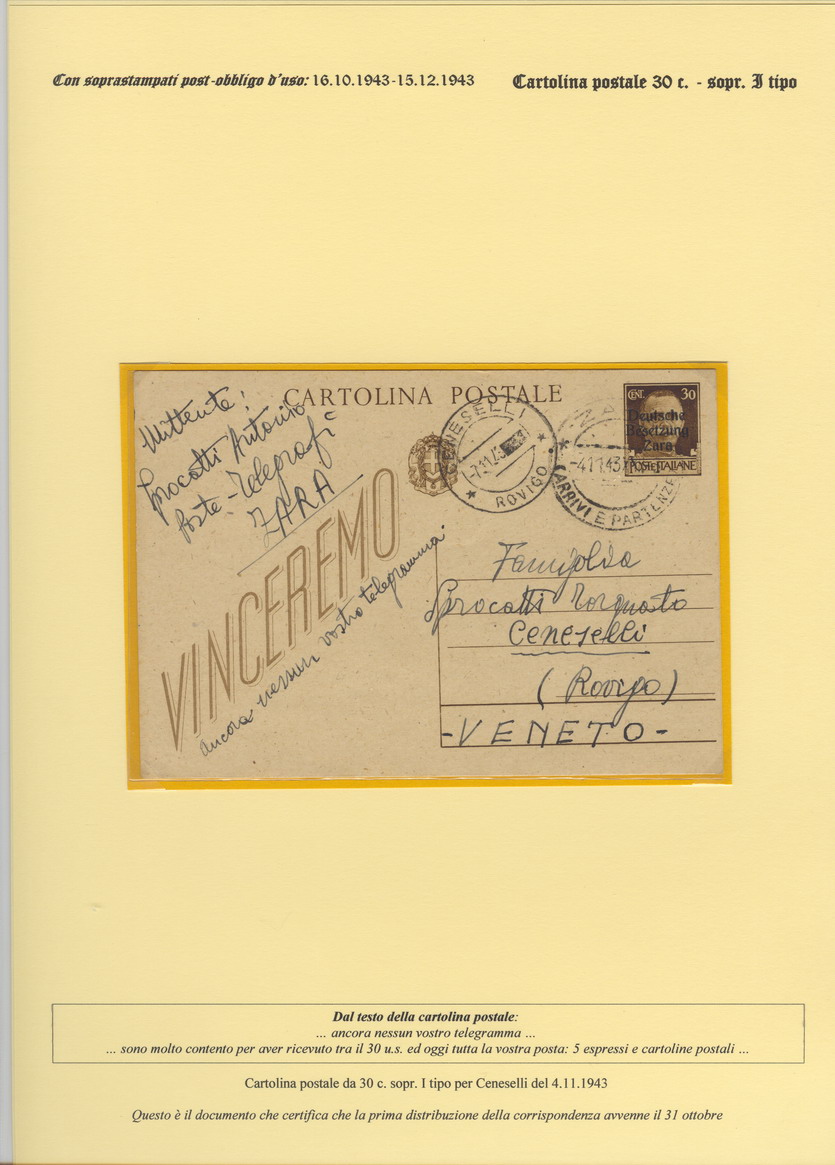 Con soprastampati post-obbligo d'uso: 16.10.1943-15.12.1943
Cartolina postale 30 c. - sopr. I tipo
CARTOLINA POSTALE
Mittente:
Sprocatti Antonio
Poste-Telegrafi
ZARA
VINCEREMO
ancora nessun vostro telegramma
CENESELLI
-7.11.43
ROVIGO
ZARA
-4.11.43
ARRIVI E PARTENZE
CENT. 30
Deutsche
Besetzung
Zara
POSTE ITALIANE
Famiglia
Sprocatti Torquato
Ceneselli
(Rovigo)
-VENETO-
Dal testo della cartolina postale:
... ancora nessun vostro telegramma ...
... sono molto contento per aver ricevuto tra il 30 u.s. ed oggi tutta la vostra posta: 5 espressi e cartoline postali ...
Cartolina postale da 30 c. sopr. I tipo per Ceneselli del 4.11.1943
Questo è il documento che certifica che la prima distribuzione della corrispondenza avvenne il 31 ottobre